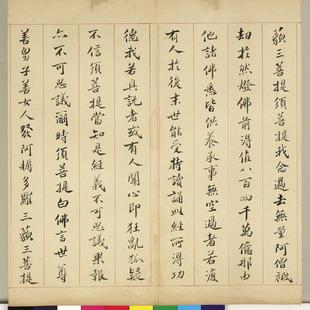 藐三菩提須菩提我念過去無量阿僧祇
劫於然燈佛前得值八百四千萬億那由
他諸佛悉皆供養承事無空過者若復
有人於後末世能受持讀誦此經所得功
德我若具説者或有人聞心即狂亂狐疑
不信須菩提當知是經義不可思議果報
亦不可思議爾時須菩提白佛言世尊
善男子善女人發阿耨多羅三藐三菩提